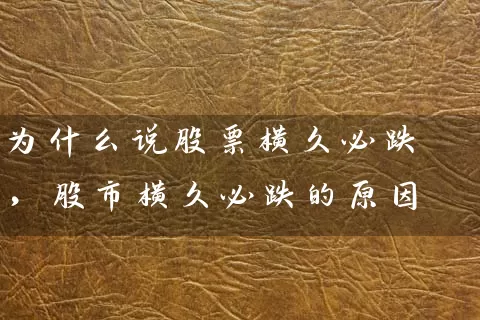 为什么说股票横久必跌
，股市横久必跌的原因